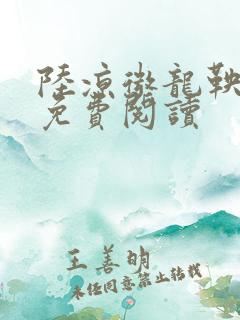 陸涼微龍鞅
免費閱讀
王善明
未经同意禁止转载